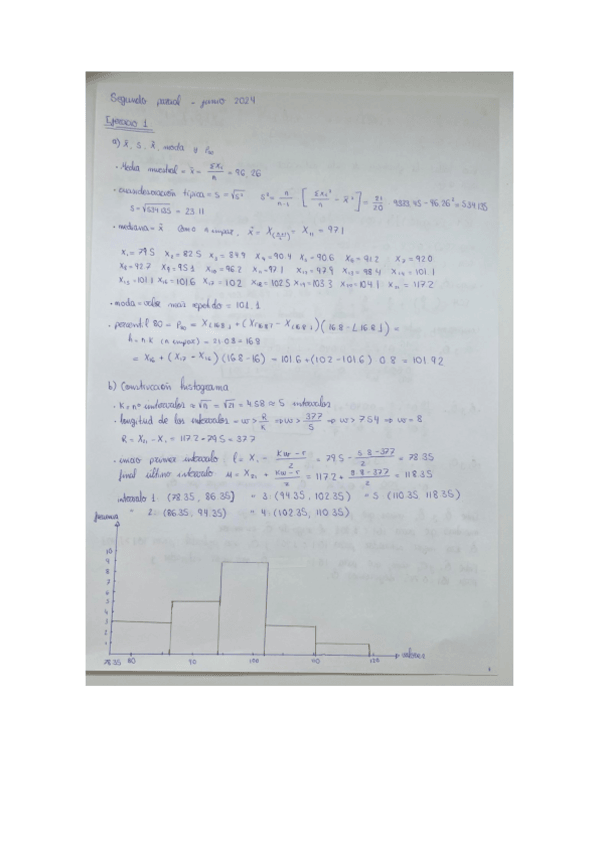 Segundo parcial - junio 2024
Ejercicio 1
a) x̄, s, x̃, moda y P₈₀
· Media muestral = x̄ = Σxᵢ/n = 96.26
· cuasidesviación típica = s = √s² s² = n/n-1 [Σxᵢ²/n - x̄²] = 21/20 9333.45 - 96.26² = 534.135
s = √534.135 = 23.11
· mediana = x̃ Como n impar, x̃ = X₍ₙ₊₁/₂₎ = X₁₁ = 97.1
X₁ = 79.5 X₂ = 82.5 X₃ = 84.9 X₄ = 90.4 X₅ = 90.6 X₆ = 91.2 X₇ = 92.0
X₈ = 92.7 X₉ = 95.1 X₁₀ = 96.2 X₁₁ = 97.1 X₁₂ = 97.9 X₁₃ = 98.4 X₁₄ = 101.1
X₁₅ = 101.1 X₁₆ = 101.6 X₁₇ = 102 X₁₈ = 102.5 X₁₉ = 103.3 X₂₀ = 104.1 X₂₁ = 117.2
· moda = valor más repetido = 101.1
· percentil 80 = P₈₀ = X⌊16.8⌋ + (X⌊16.8⌋+1 - X⌊16.8⌋)(16.8 - ⌊16.8⌋) =
h = n·k (n impar) = 21·0.8 = 16.8
= X₁₆ + (X₁₇ - X₁₆)(16.8 - 16) = 101.6 + (102 - 101.6) 0.8 = 101.92
b) Construcción histograma
· K = nº intervalos ≈ √n = √21 = 4.58 ≈ 5 intervalos
· longitud de los intervalos = w > R/K ⇒ w > 37.7/5 ⇒ w > 7.54 ⇒ w = 8
R = X₂₁ - X₁ = 117.2 - 79.5 = 37.7
· inicio primer intervalo l = X₁ - Kw-r/2 = 79.5 - 5·8-37.7/2 = 78.35
final último intervalo u = X₂₁ + Kw-r/2 = 117.2 + 5·8-37.7/2 = 118.35
intervalo 1: (78.35, 86.35] = 3: (94.35, 102.35) = 5: (110.35, 118.35)
= 2: (86.35, 94.35) = 4: (102.35, 110.35)
10
9
8
7
6
5
4
3
2
1
valores
78.35 80 90 100 110 120
1